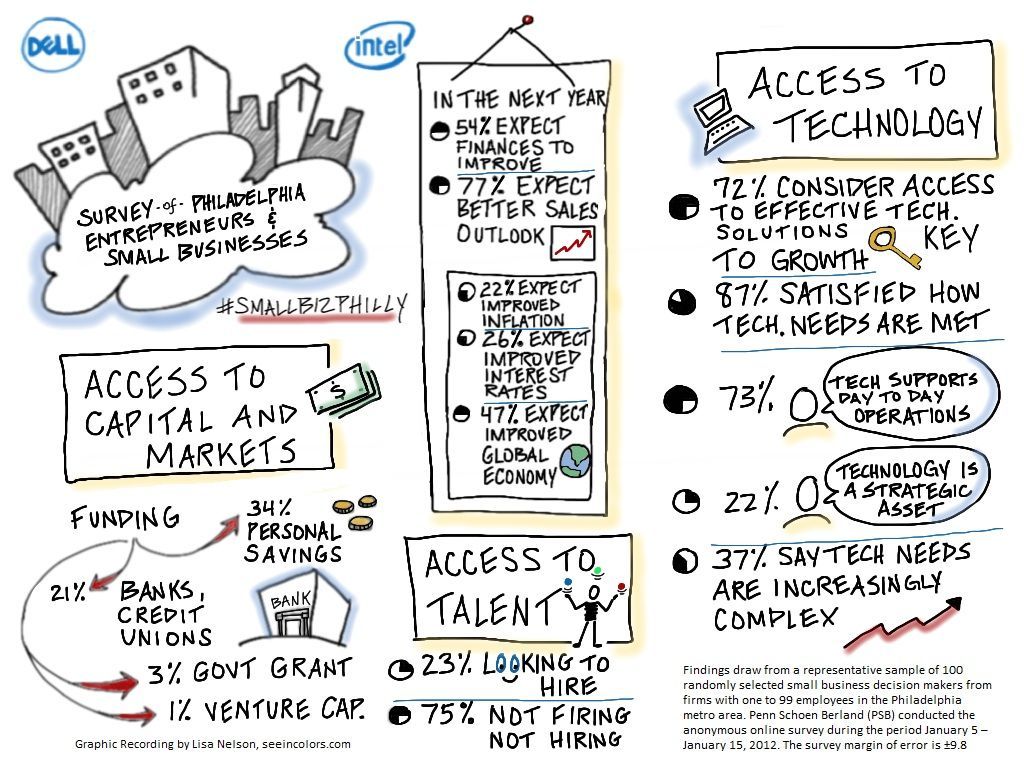 DELL
intel
SURVEY-of-PHILADELPHIA
ENTREPRENEURS &
SMALL BUSINESSES
#SMALLBIZPHILLY
ACCESS TO
CAPITAL AND
MARKETS
$
FUNDING
34%
PERSONAL
SAVINGS
21%
BANKS,
CREDIT
UNIONS
BANK
3% GOVT GRANT
1% VENTURE CAP.
Graphic Recording by Lisa Nelson, seeincolors.com
IN THE NEXT YEAR
54% EXPECT
FINANCES TO
IMPROVE
77% EXPECT
BETTER SALES
OUTLOOK
22% EXPECT
IMPROVED
INFLATION
26% EXPECT
IMPROVED
INTEREST
RATES
47% EXPECT
IMPROVED
GLOBAL
ECONOMY
ACCESS TO
TALENT
23% LOOKING TO
HIRE
75% NOT FIRING
NOT HIRING
ACCESS TO
TECHNOLOGY
72% CONSIDER ACCESS
TO EFFECTIVE TECH.
SOLUTIONS KEY
TO GROWTH
87% SATISFIED HOW
TECH. NEEDS ARE MET
73%
TECH SUPPORTS
DAY TO DAY
OPERATIONS
22%
TECHNOLOGY IS
A STRATEGIC
ASSET
37% SAY TECH NEEDS
ARE INCREASINGLY
COMPLEX
Findings draw from a representative sample of 100
randomly selected small business decision makers from
firms with one to 99 employees in the Philadelphia
metro area. Penn Schoen Berland (PSB) conducted the
anonymous online survey during the period January 5 –
January 15, 2012. The survey margin of error is ±9.8